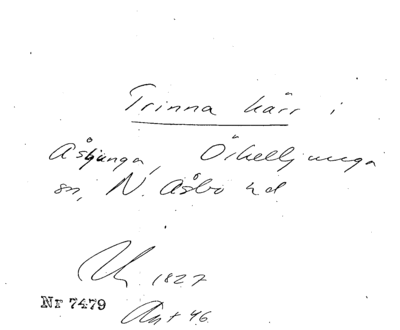 Trinna kärr i
Åsljunga, Örkelljunga
sn, N. Åsbo hd
1827
Nr 7479